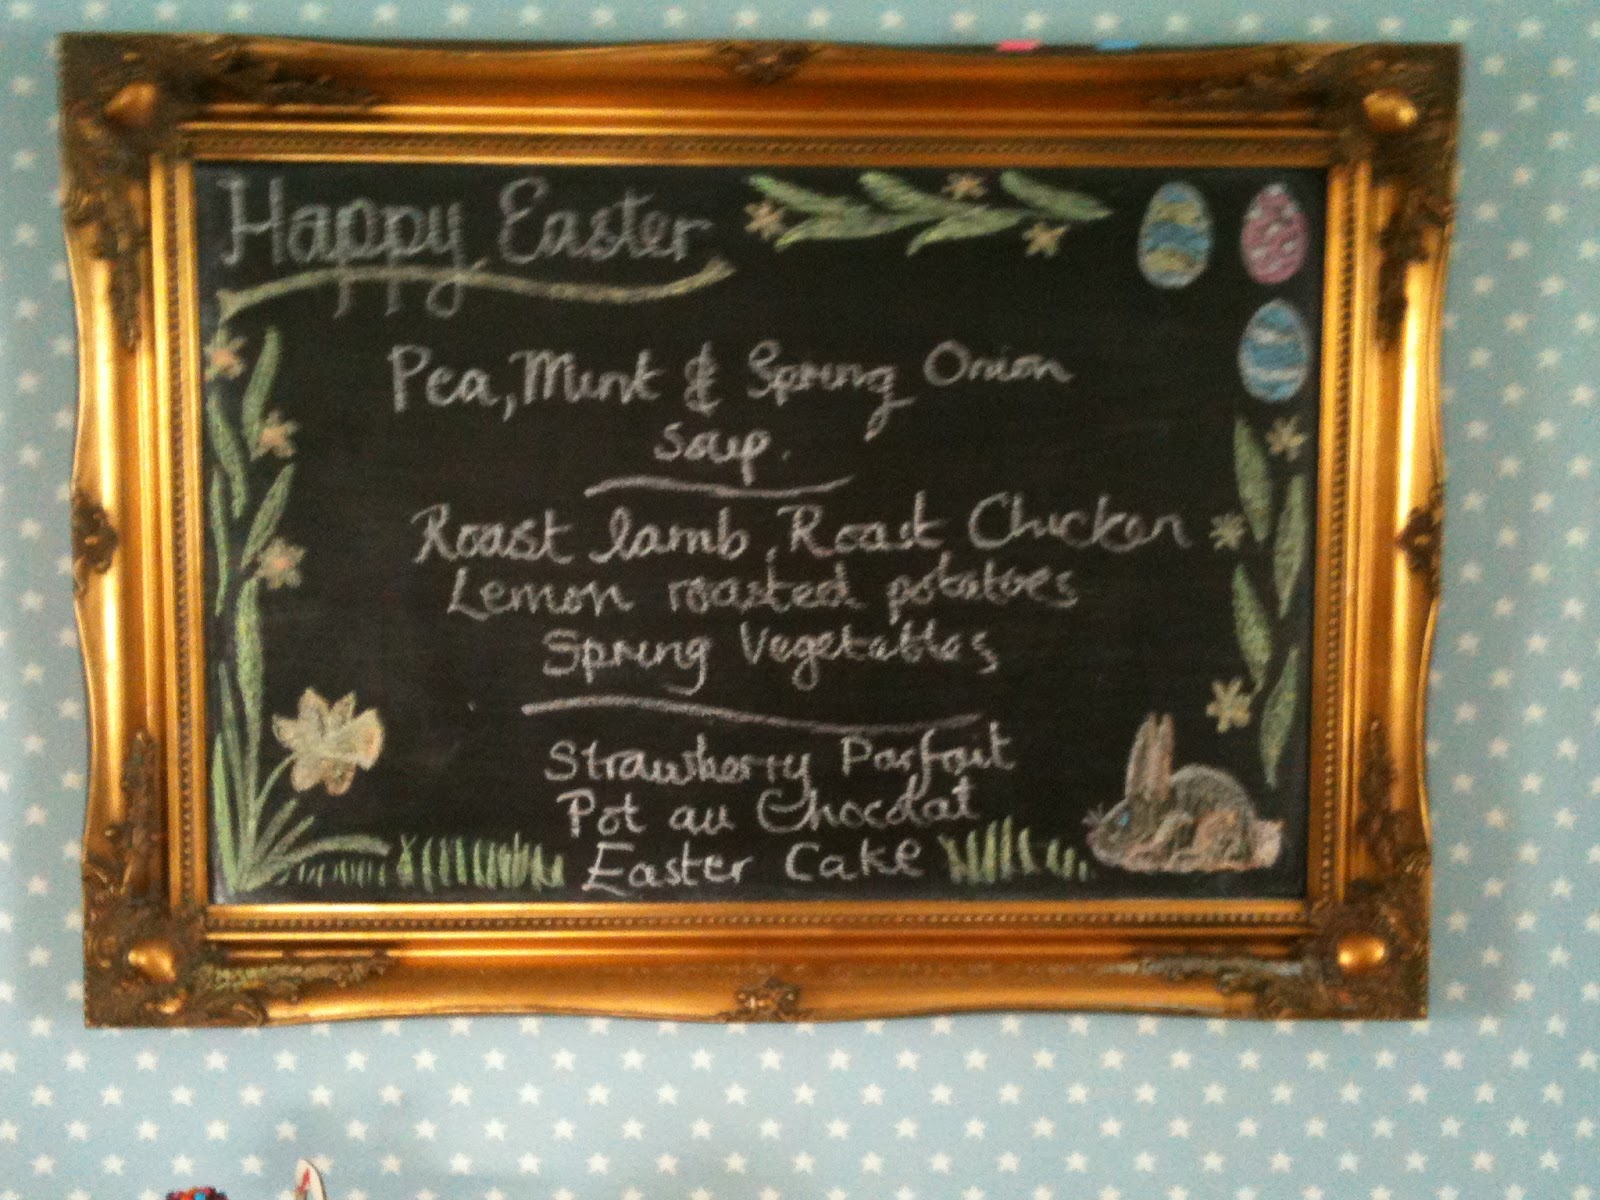 Happy Easter
Pea, Mint & Spring Onion
Soup.
Roast lamb, Roast Chicken
Lemon roasted potatoes
Spring Vegetables
Strawberry Parfait
Pot au Chocolat
Easter Cake